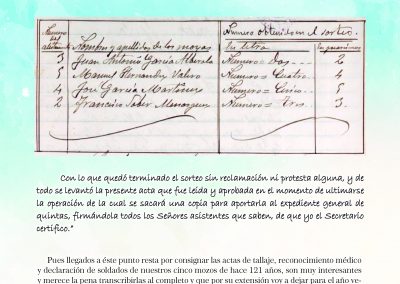 Número del alistam.to Nombre y apellidos de los mozos Número obtenido en el sorteo
En letra En guarismo
3 Juan Antonio García Alberola Número = Dos 2
5 Manuel Hernandez Valero Número = Cuatro 4
4 José García Martínez Número = Cinco 5
2 Francisco Número = Tres 3.
Con lo que quedó terminado el sorteo sin reclamación ni protesta alguna, y de
todo se levantó la presente acta que fue leída y aprobada en el momento de ultimarse
la operación de la cual se sacará una copia para aportarla al expediente general de
quintas, firmándola todos los Señores asistentes que saben, de que yo el Secretario
certifico."
Pues llegados a éste punto resta por consignar las actas de tallaje, reconocimiento médico
y declaración de soldados de nuestros cinco mozos de hace 121 años, son muy interesantes
y merece la pena transcribirlas al completo y que por su extensión voy a dejar para el año ve-